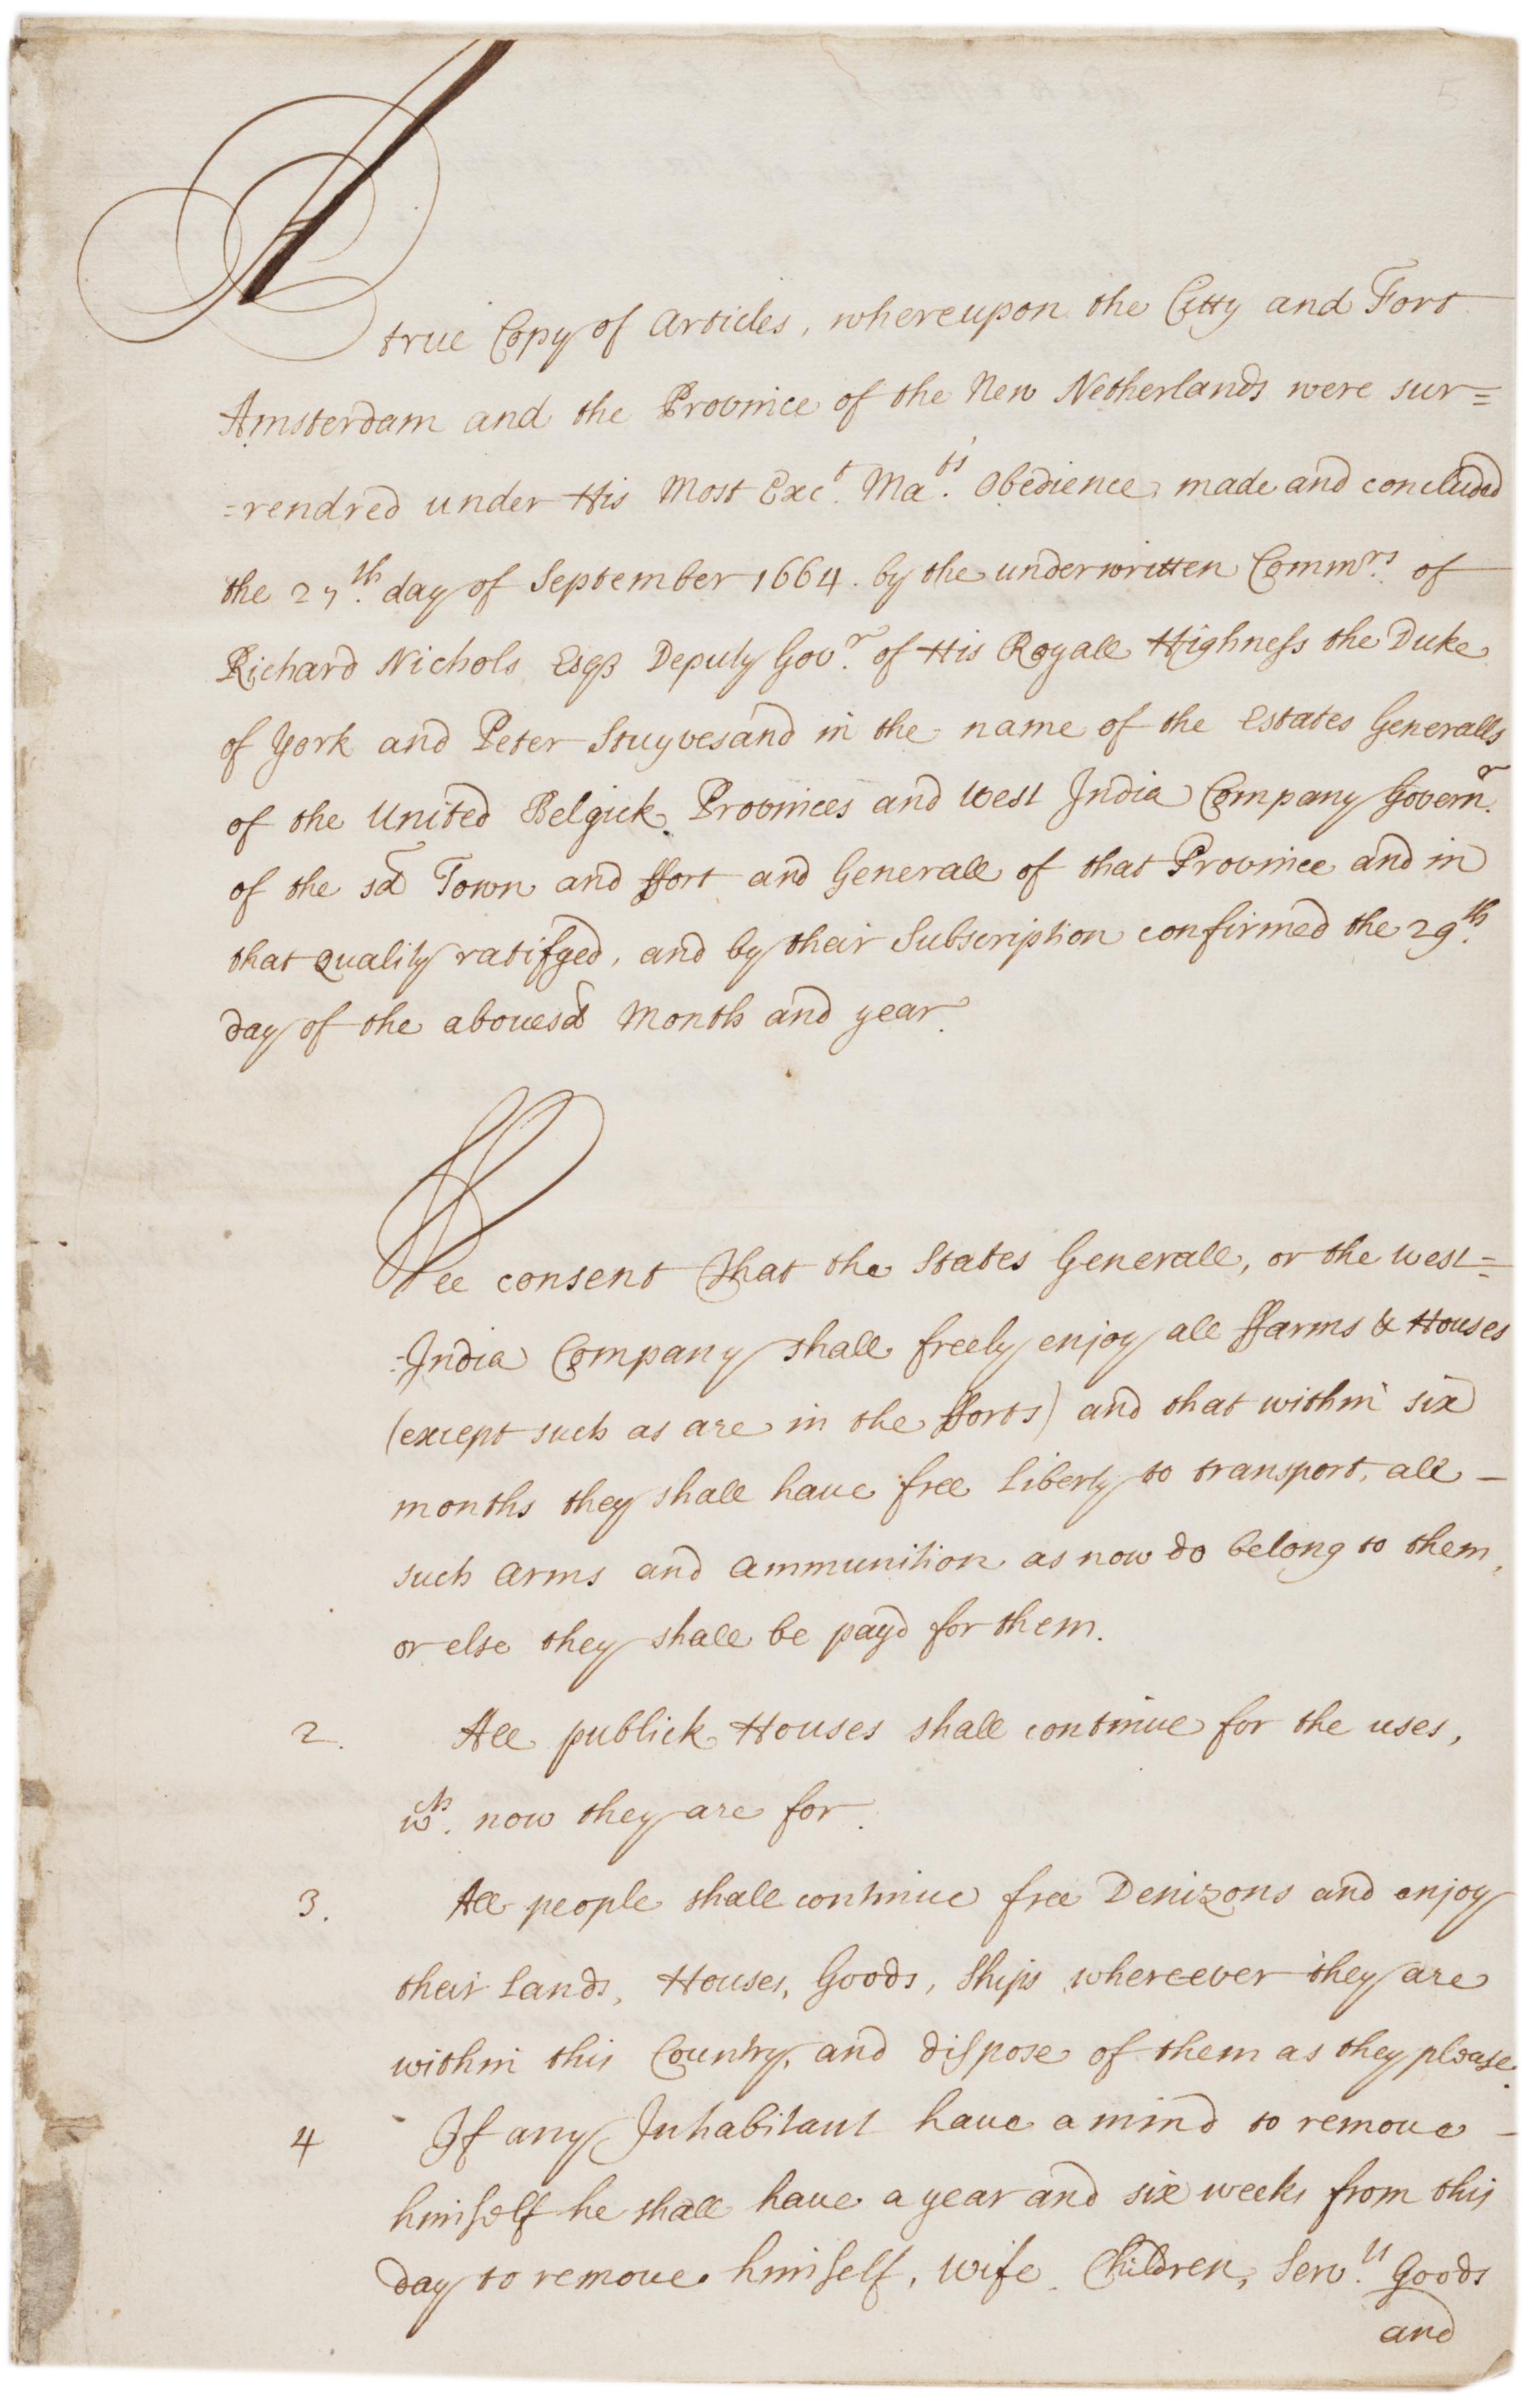 A
true Copy of Articles, whereupon the Citty and Fort
Amsterdam and the Province of the New Netherlands were sur=
=rendred under His Most Exct. Mats. Obedience, made and concluded
the 27th. day of September 1664. by the underwritten Commrs. of
Richard Nichols Esqr Deputy Govr. of His Royall Highness the Duke
of York and Peter Stuyvesand in the name of the Estates Generalls
of the United Belgick Provinces and West India Company Governr.
of the sd Town and ffort and Generall of that Province and in
that Quality ratifyed, and by their Subscription confirmed the 29th.
day of the abovesd Month and year.
Wee consent That the States Generall, or the West=
=India Company shall freely enjoy all ffarms & Houses
(except such as are in the fforts) and that within six
months they shall have free Liberty to transport, all –
such Arms and Ammunition as now do belong to them,
or else they shall be payd for them.
2. All publick Houses shall continue for the uses,
wch. now they are for.
3. All people shall continue free Denizons and enjoy
their Lands, Houses, Goods, Ships whereever they are
within this Country, and dispose of them as they please.
4 If any Inhabitant have a mind to remove –
himself he shall have a year and six weeks from this
day to remove himself, Wife, Children, Servts. Goods
and